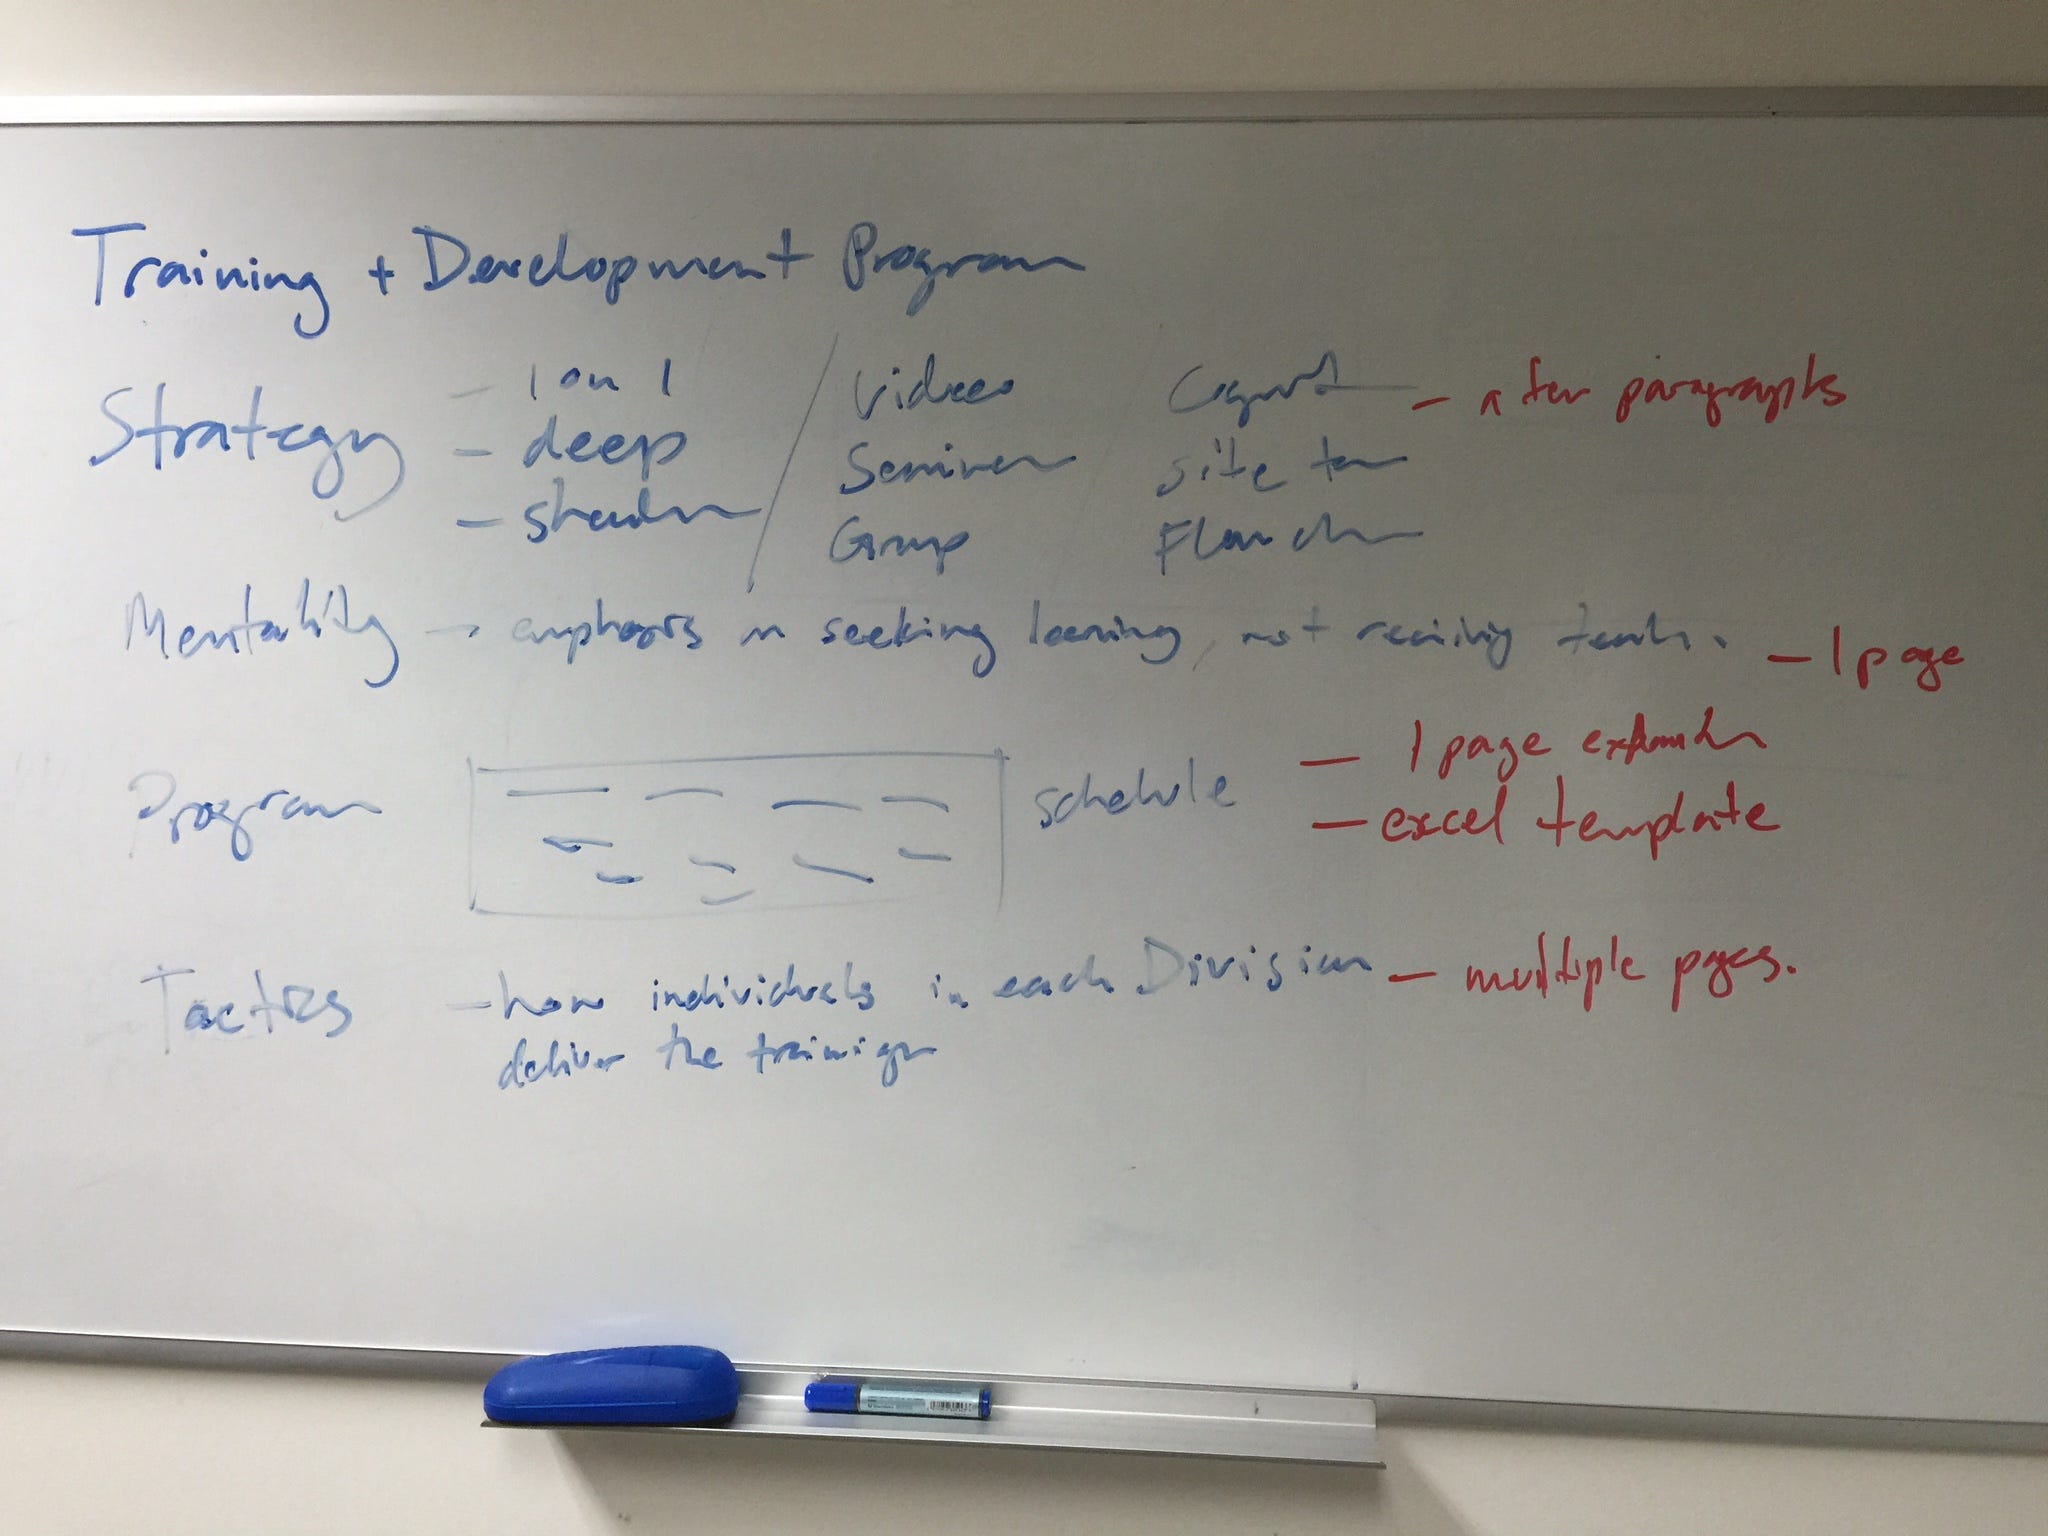 Training + Development Program
Strategy - 1 on 1 / Video - a few paragraphs
- deep Seminar site tour
- shadow Group
Mentality → emphasis on seeking learning, not receiving - 1 page
Program schedule - 1 page
- excel template
Tactics - how individuals in each Division - multiple pages.
deliver the training